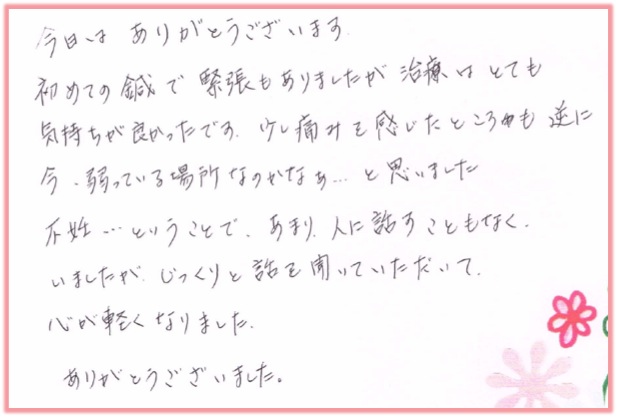 今日は ありがとうございます.
初めての鍼で 緊張もありましたが 治療は とても
気持ちが良かったです. 少し痛みを感じたところも 逆に
今、弱っている場所なのかなぁ… と思いました
不妊…ということで、あまり、人に話すこともなく.
いましたが、じっくりと話を聞いていただいて.
心が軽くなりました.
ありがとうございました。